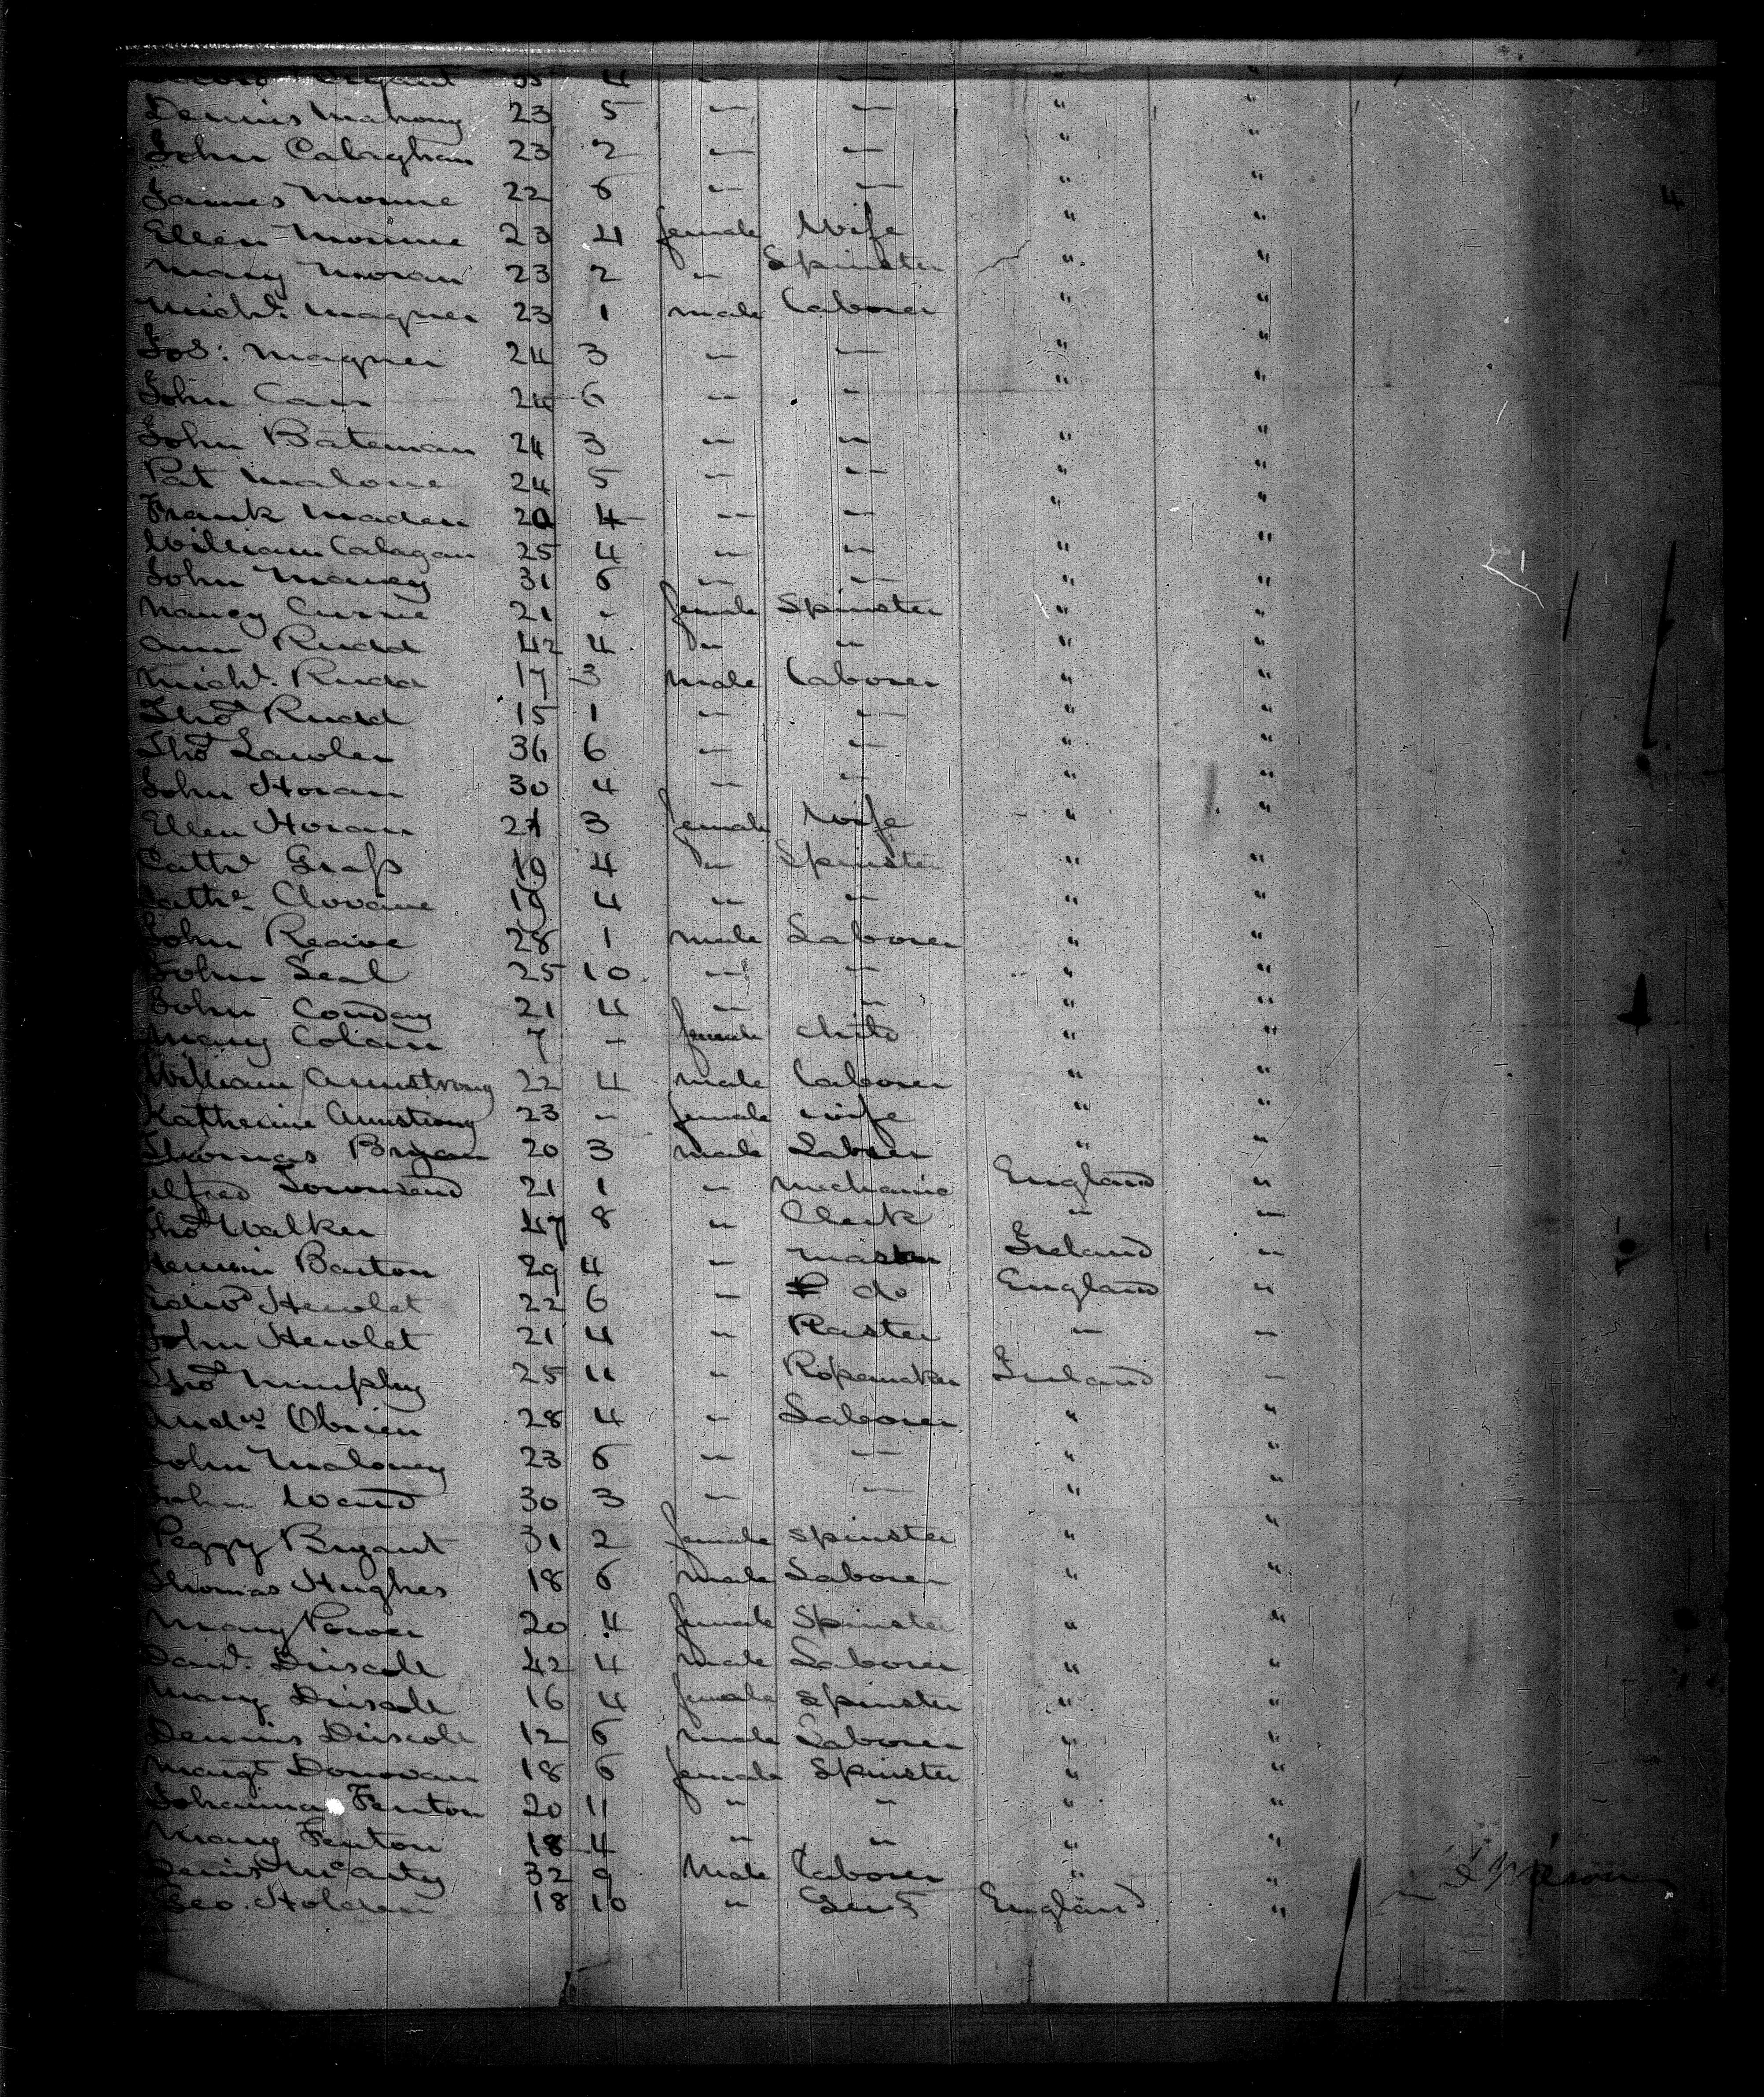 Bryant 35 4 " " " "
Dennis Mahony 23 5 " " " "
John Calaghan 23 2 " " " "
James Mourne 22 6 " " " "
Ellen Mourne 23 4 female Wife " "
Mary Moran 23 2 " Spinster " "
Michl. Magner 23 1 male laborer " "
Jos: Magner 24 3 " " " "
John Carr 24 6 " " " "
John Bateman 24 3 " " " "
Pat Malone 24 5 " " " "
Frank Maden 20 4 " " " "
William Calagan 25 4 " " " "
John Maney 31 6 " " " "
Nancy Currie 21 - female Spinster " "
Ann Rudd 42 4 " " " "
Michl. Rudd 17 3 male laborer " "
Thos Rudd 15 1 " " " "
Thos Lawler 36 6 " " " "
John Horan 30 4 " " " "
Ellen Horan 21 3 female Wife " "
Cathe Grass 19 4 " Spinster " "
Cathe. 19 4 " " " "
John Reaive 28 1 male Laborer " "
John Seal 25 10 " " " "
John Conday 21 4 " " " "
Mary Colain 7 - female child " "
William Armstrong 22 4 male laborer " "
Katherine Armstrong 23 - female wife " "
Thomas Bryan 20 3 male Laborer " "
Alfred Townsend 21 1 " Mechanic England "
Thos Walker 47 8 " Clerk " "
Barton 29 4 " Ireland "
Edwd Hewlet 22 6 " do England "
John Hewlet 21 4 " Plaster " "
Thos Murphy 25 11 " Ropemaker Ireland "
Andw Obrien 28 4 " Laborer " "
John Maloney 23 6 " " " "
John Ward 30 3 " " " "
Peggy Bryant 31 2 female spinster " "
Thomas Hughes 18 6 male Laborer " "
Mary Power 20 4 female Spinster " "
Danl. Driscoll 42 4 male Laborer " "
Mary Driscoll 16 4 female spinster " "
Dennis Driscoll 12 6 male Laborer " "
Margt Donovan 18 6 female Spinster " "
Johanna Fenton 20 11 " " " "
Mary Fenton 18 4 " " " "
Denis McCarty 32 9 Male laborer " "
Geo. Holden 18 10 " Gent England "